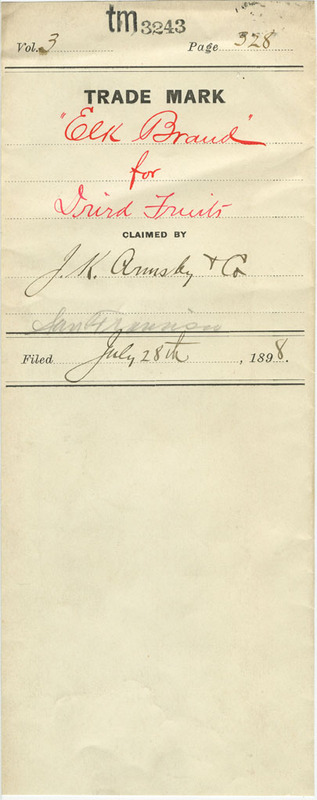 tm 3243
Vol. 3 Page 328
TRADE MARK
"Elk Brand"
for
Dried Fruits
CLAIMED BY
J. K. Armsby & Co
San Francisco
Filed July 28th, 1898.